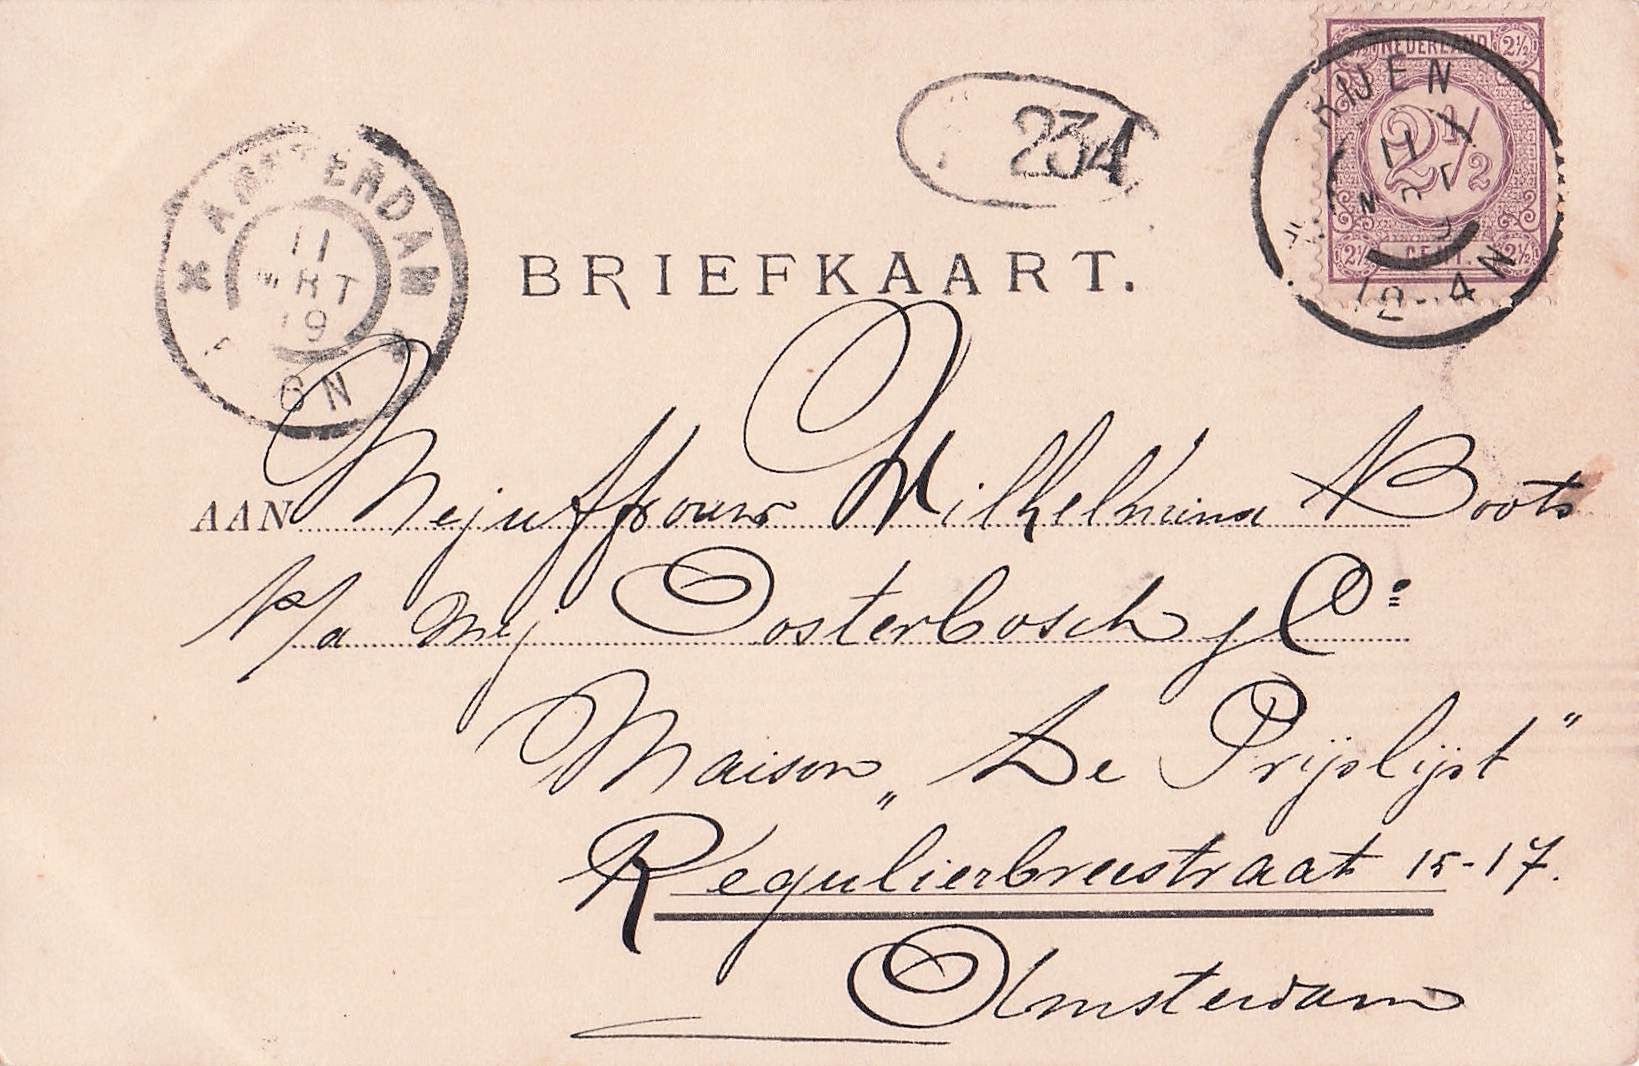 NEDERLAND
2½ 2½
2½
2½ CENT. 2½
RIJEN
11
12-4N
AMSTERDAM
11
MRT
19
6N
234
BRIEFKAART.
AAN Mejuffrouw Wilhelmina Boots
p/a Mej Oosterbosch & Co
Maison „De Prijslijst"
Regulierbreestraat 15-17.
Amsterdam